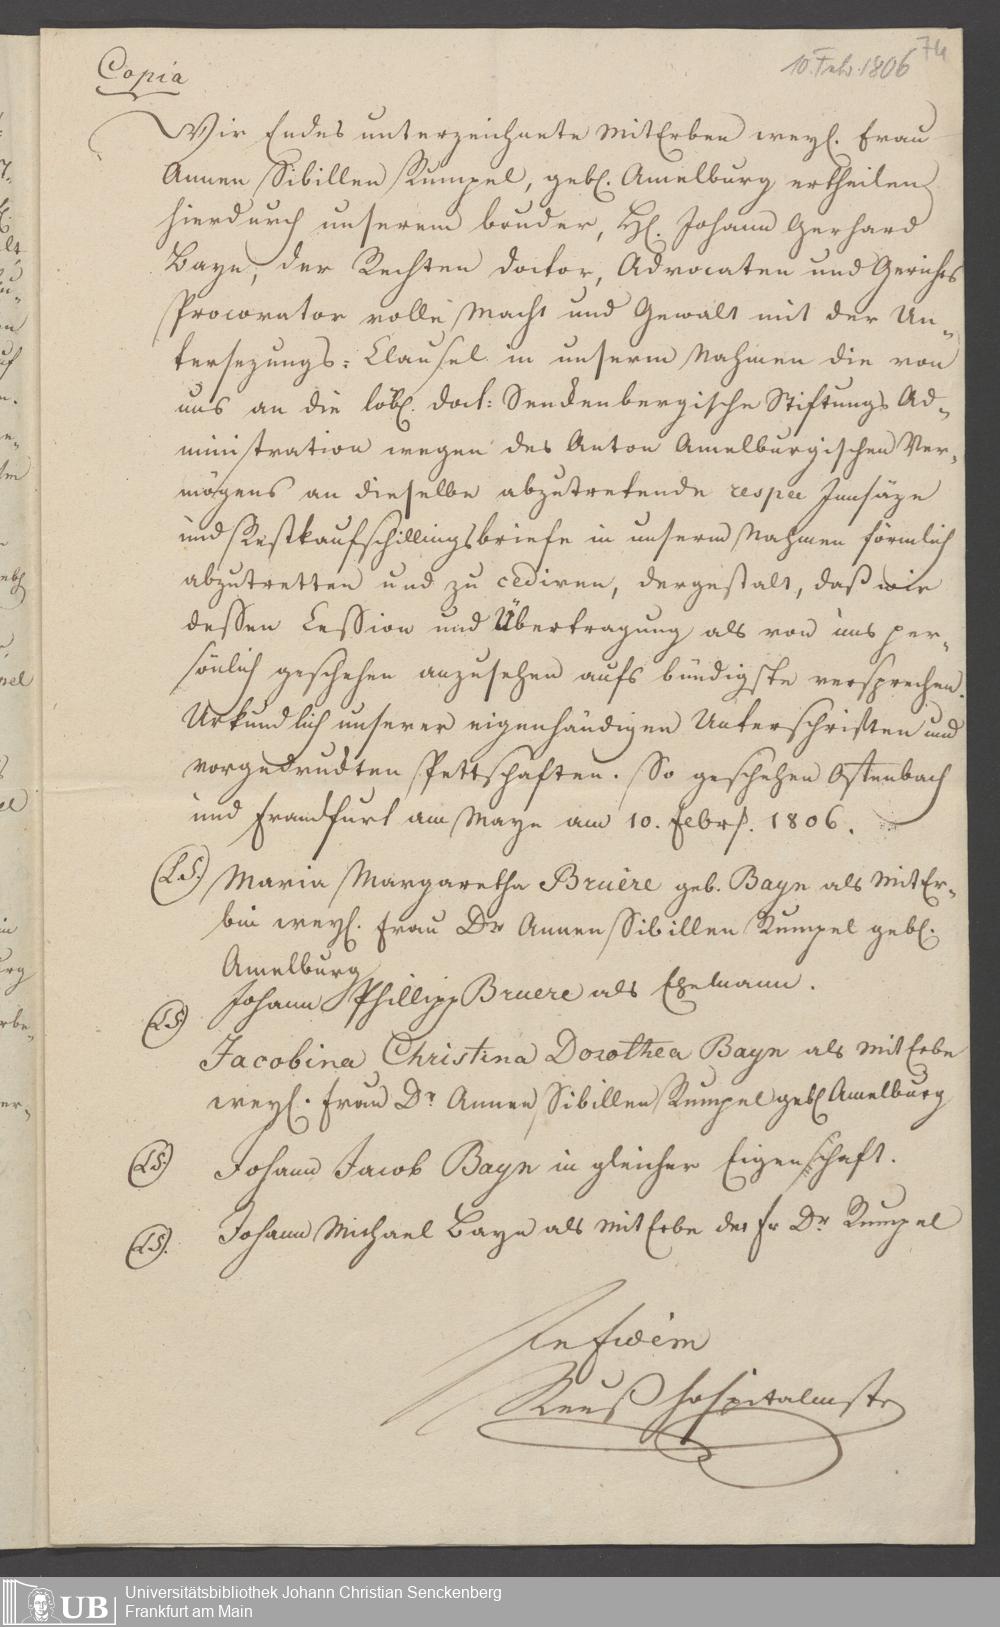 Copia
10. Febr. 1806
74
Wir Endes unterzeichnete MitErben weyl. Frau
Annen Sibillen Rumpel, gebl. Amelburg ertheilen
hierdurch unserem bruder, Hl. Johann Gerhard
Bayn, der Rechten Doctor, Advocaten und Gerichts
Procorator volle Macht und Gewalt mit der Un-
tersezungs: Clausel in unserm Nahmen die von
uns an die löbl. doct: Senckenbergische Stiftungs Ad-
ministration wegen des Anton Amelburgischen Ver-
mögens an dieselbe abzutretende respee Innsäze
und Restkaufschillingsbriefe in unserm Nahmen förmlich
abzutretten und zu cediren, dergestalt, daß wir
dessen Cession und Übertragung als von uns per-
sönlich geschehen anzusehen aufs bündigste versprechen.
Urkundlich unserer eigenhändigen Unterschriften und
vorgedruckten Pettschaften. So geschehen Offenbach
und Franckfurt am Mayn am 10. Febr. 1806.
(LS.) Maria Margaretha Bruère geb. Bayn als MitEr-
bin weyl. Frau Dr Annen Sibillen Rumpel gebl.
Amelburg
Johann Phillipp Bruere als Ehemann.
(LS) Jacobina Christina Dorothea Bayn als MitErbe
weyl. Frau Dr Annen Sibillen Rumpel gebl Amelburg
(LS.) Johann Jacob Bayn in gleicher Eigenschaft.
(LS). Johann Michael Bayn als MitErbe der Fr Dr Rumpel
In fidem
Reuß Hospitalmstr
UB
Universitätsbibliothek Johann Christian Senckenberg
Frankfurt am Main